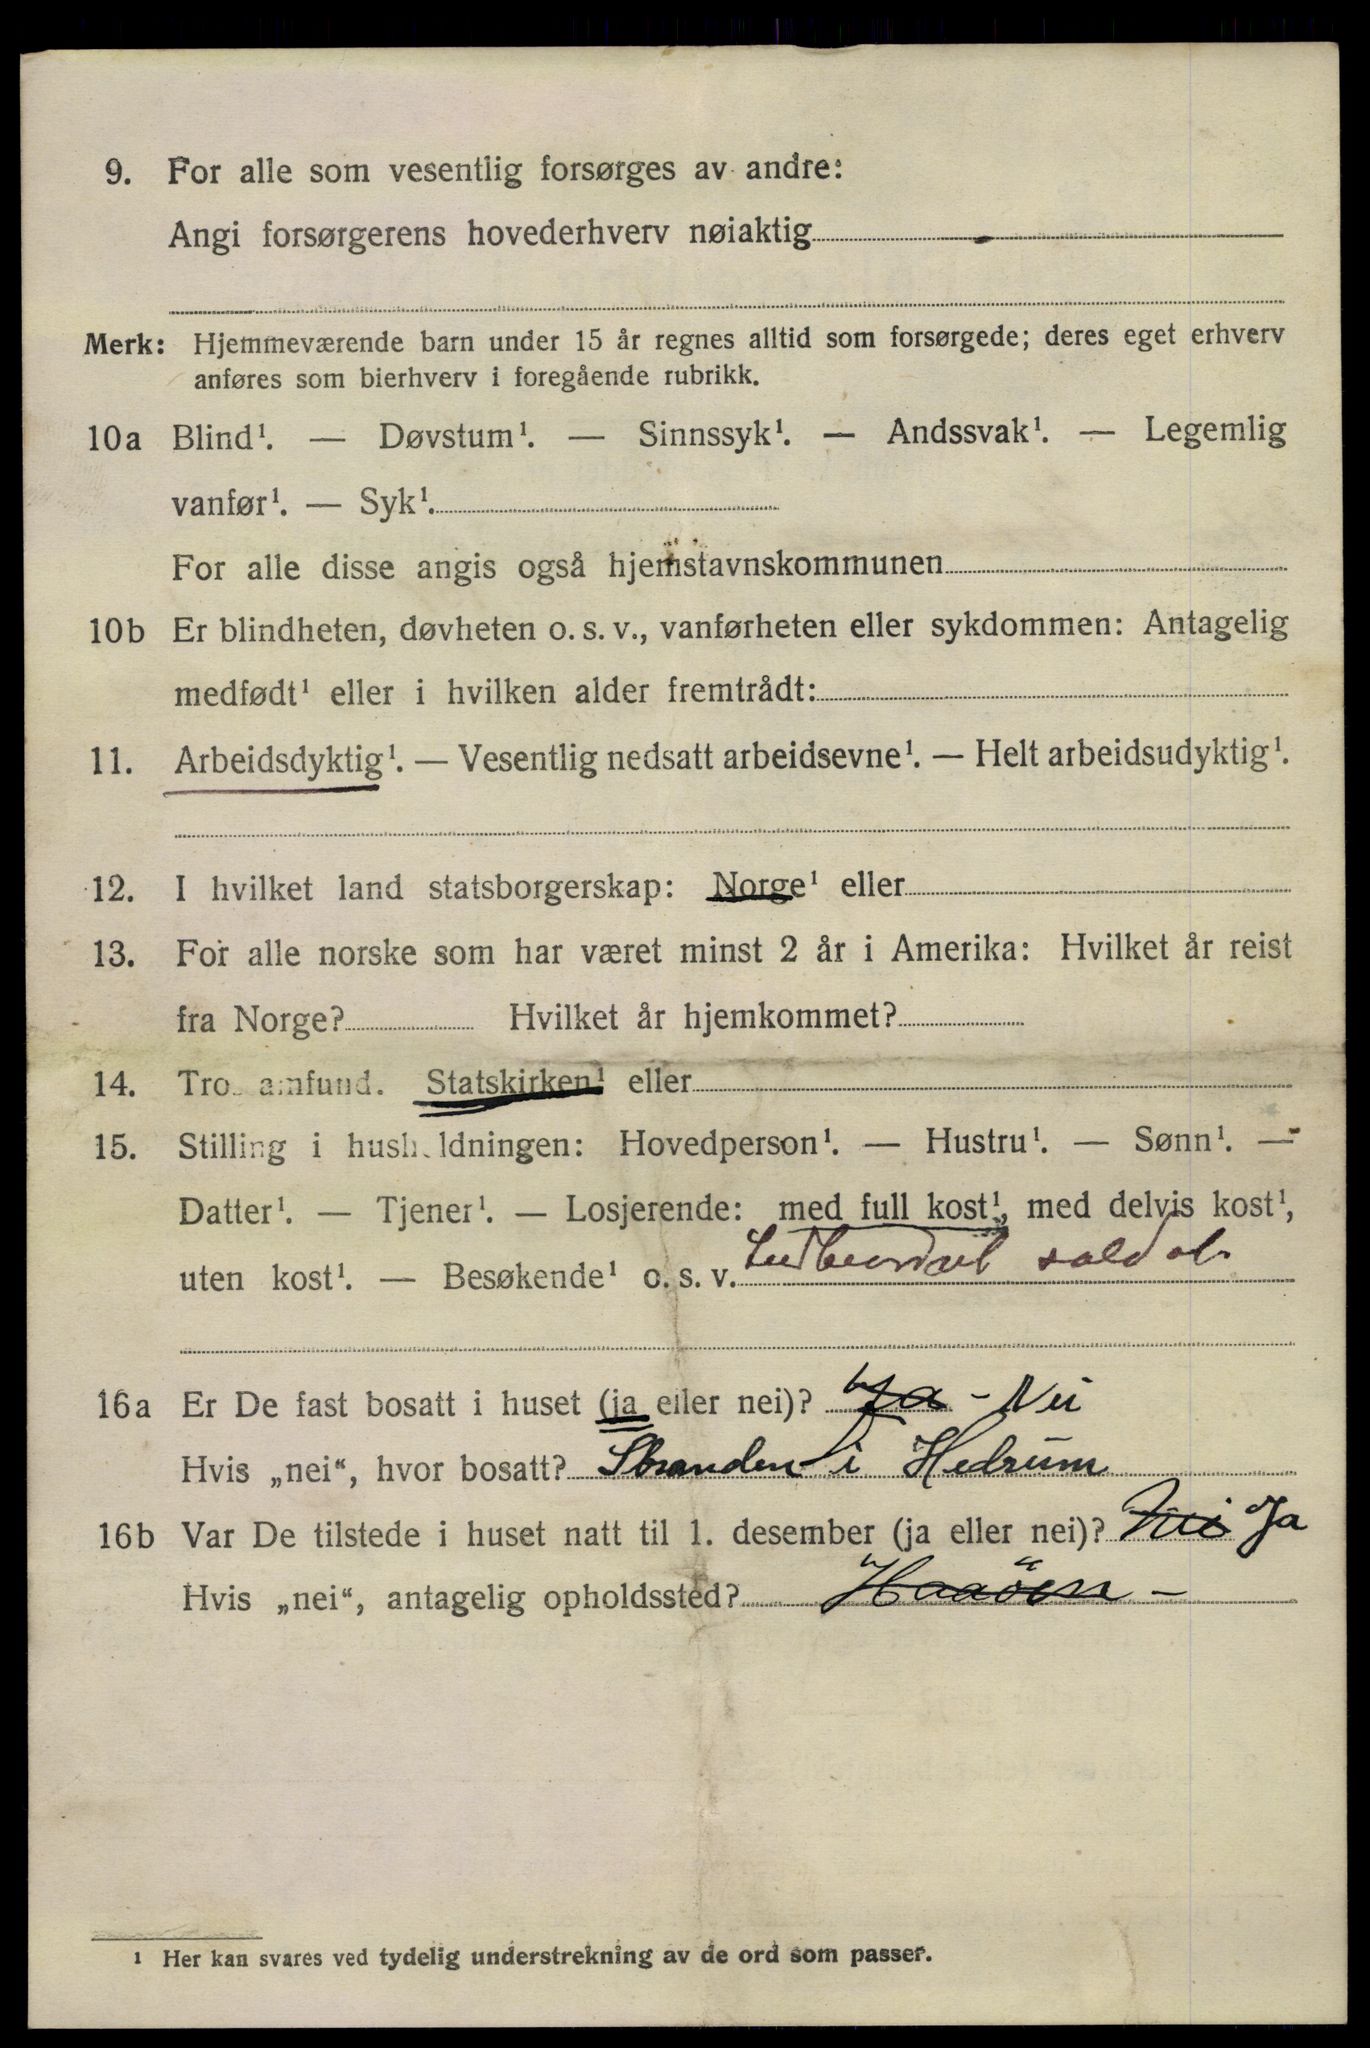 9. For alle som vesentlig forsørges av andre:
Angi forsørgerens hovederhverv nøiaktig -
Merk: Hjemmeværende barn under 15 år regnes alltid som forsørgede; deres eget erhverv
anføres som bierhverv i foregående rubrikk.
10a Blind¹. — Døvstum¹. — Sinnssyk¹. — Andssvak¹. — Legemlig
vanfør¹. — Syk¹.
For alle disse angis også hjemstavnskommunen
10b Er blindheten, døvheten o. s. v., vanførheten eller sykdommen: Antagelig
medfødt¹ eller i hvilken alder fremtrådt:
11. Arbeidsdyktig¹. — Vesentlig nedsatt arbeidsevne¹. — Helt arbeidsudyktig¹.
12. I hvilket land statsborgerskap: Norge¹ eller
13. For alle norske som har været minst 2 år i Amerika: Hvilket år reist
fra Norge? Hvilket år hjemkommet?
14. Tro amfund. Statskirken¹ eller
15. Stilling i hush ldningen: Hovedperson¹. — Hustru¹. — Sønn¹. —
Datter¹. — Tjener¹. — Losjerende: med full kost¹, med delvis kost¹,
uten kost¹. — Besøkende¹ o. s. v. soldat
16a Er De fast bosatt i huset (ja eller nei)? Ja - Nei
Hvis „nei“, hvor bosatt? Stranden i Hedrum
16b Var De tilstede i huset natt til 1. desember (ja eller nei)? Nei Ja
Hvis „nei“, antagelig opholdssted? Haaöen -
¹ Her kan svares ved tydelig understrekning av de ord som passer.